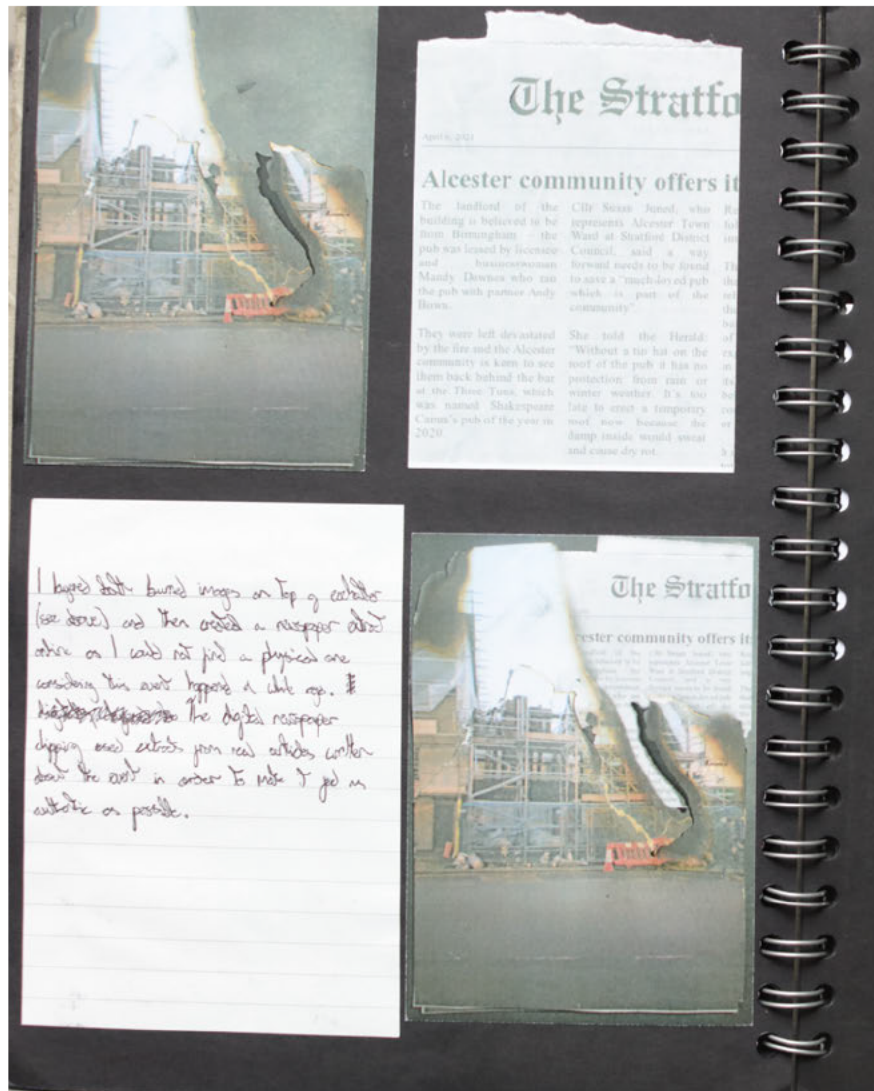 The Stratfo
April 6, 2021
Alcester community offers it
The landlord of the
building is believed to be
from Birmingham - the
pub was leased by licensee
and businesswoman
Mandy Downes who ran
the pub with partner Andy
Bown.
They were left devastated
by the fire and the Alcester
community is keen to see
them back behind the bar
at the Three Tuns, which
was named Shakespeare
Camra's pub of the year in
2020
Cllr Susan Juned, who
represents Alcester Town
Ward at Stratford District
Council, said a way
forward needs to be found
to save a "much loved pub
which is part of the
community"
She told the Herald:
"Without a tin hat on the
roof of the pub it has no
protection from rain or
winter weather. It's too
late to erect a temporary
roof now because the
damp inside would sweat
and cause dry rot.
I layered both burned images on top of eachother
(see above) and then created a newspaper
online as I could not find a physical one
considering this event happened a while ago.
The digital newspaper
clipping used extracts from real articles written
about the event in order to make it feel as
authentic as possible.
The Stratfo
cester community offers it